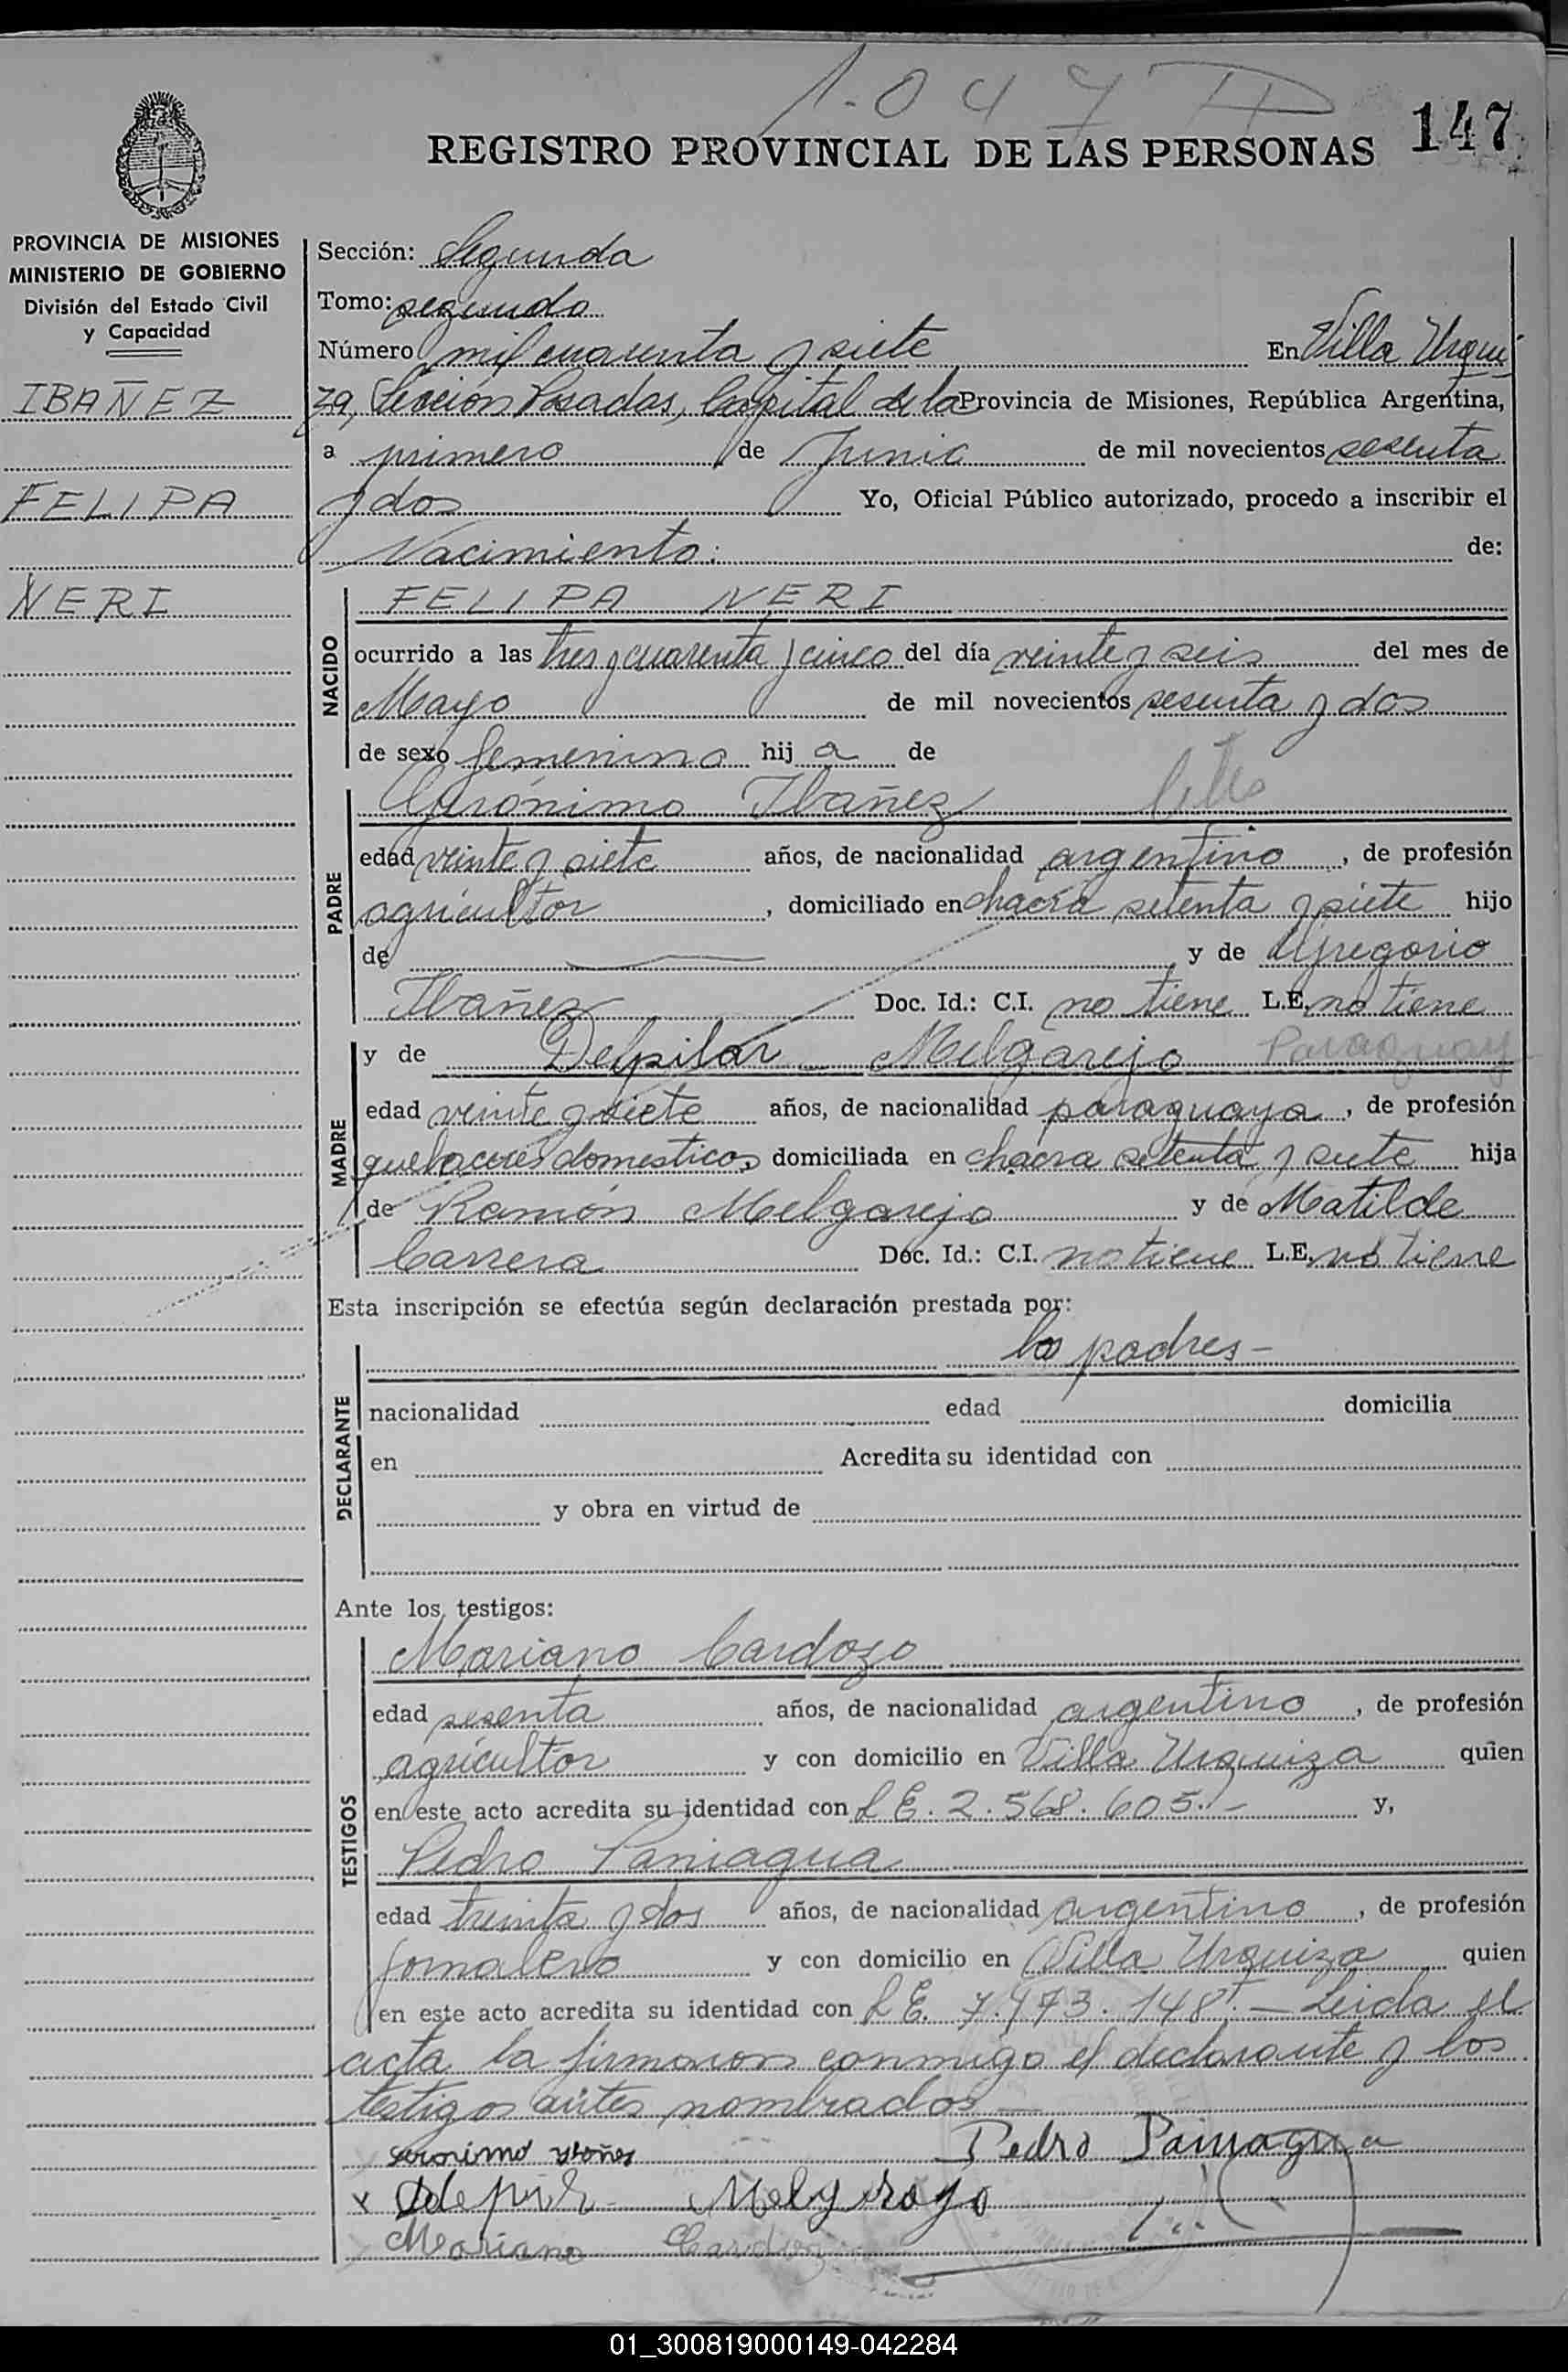 1.047
147
REGISTRO PROVINCIAL DE LAS PERSONAS
PROVINCIA DE MISIONES
MINISTERIO DE GOBIERNO
División del Estado Civil
y Capacidad
IBAÑEZ
FELIPA
NERI
Sección: Segunda
Tomo: segundo
Número mil cuarenta y siete En Villa Urqui
za, Sección Posadas, Capital de la Provincia de Misiones, República Argentina,
a primero de Junio de mil novecientos sesenta
y dos Yo, Oficial Público autorizado, procedo a inscribir el
Nacimiento. de:
NACIDO
FELIPA NERI
ocurrido a las tres y cuarenta y cinco del día veinte y seis del mes de
Mayo de mil novecientos sesenta y dos
de sexo femenino hij a de
PADRE
Gerónimo Ibañez
edad veinte y siete años, de nacionalidad argentino, de profesión
agricultor, domiciliado en chacra setenta y siete hijo
de — y de Gregorio
Ibañez Doc. Id.: C.I. no tiene L.E. no tiene
MADRE
y de Delpilar Melgarejo Paraguay
edad veinte y siete años, de nacionalidad paraguaya, de profesión
quehaceres domesticos, domiciliada en chacra setenta y siete hija
de Ramón Melgarejo y de Matilde
Carrera Doc. Id.: C.I. no tiene L.E. no tiene
Esta inscripción se efectúa según declaración prestada por:
DECLARANTE
los padres -
nacionalidad edad domicilia
en Acredita su identidad con
y obra en virtud de
Ante los testigos:
TESTIGOS
Mariano Cardozo
edad sesenta años, de nacionalidad argentino, de profesión
agricultor y con domicilio en Villa Urquiza quien
en este acto acredita su identidad con L E. 2.568.605.- y,
Pedro Paniagua
edad treinta y dos años, de nacionalidad argentino, de profesión
jornalero y con domicilio en Villa Urquiza quien
en este acto acredita su identidad con L E. 7.473.148. — Leida el
acta la firmaron conmigo el declarante y los
testigos antes nombrados —
Pedro Painagua
Melgarejo
Mariano Cardozo
01_300819000149-042284